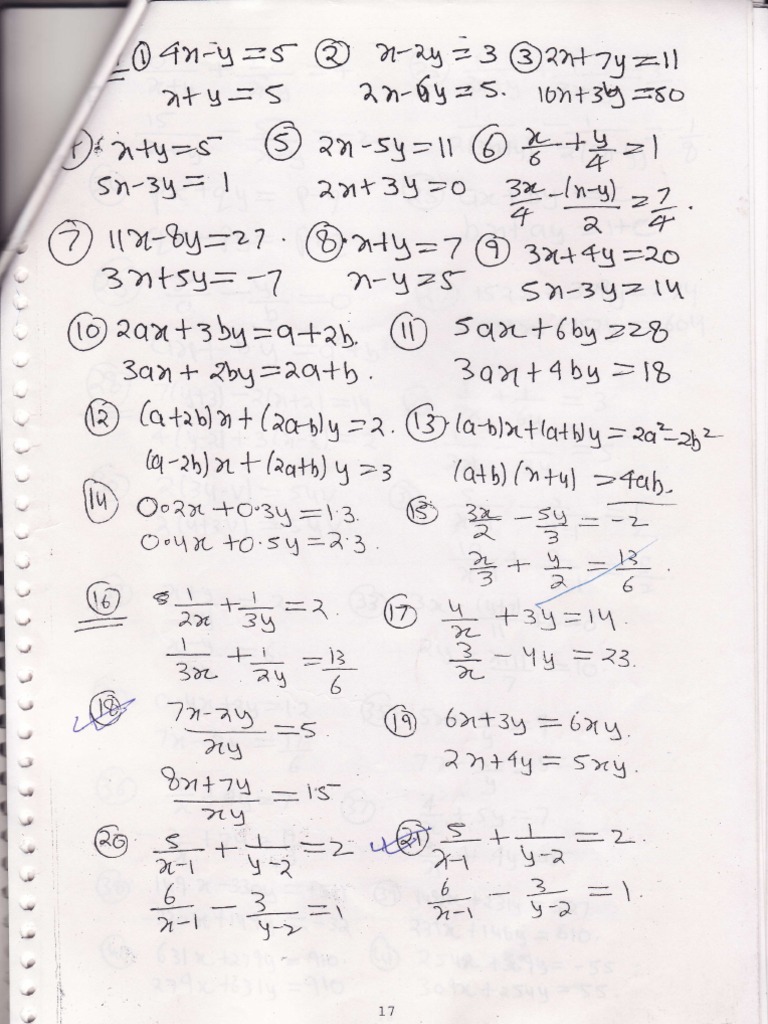 ① 4x-y=5 ② x-2y=3 ③ 2x+7y=11
x+y=5 2x-6y=5. 10x+3y=80
x+y=5 ⑤ 2x-5y=11 ⑥ x/6 + y/4 = 1
5x-3y=1 2x+3y=0 3x/4 - (x-y)/2 = 7/4.
⑦ 11x-8y=27. ⑧ x+y=7 ⑨ 3x+4y=20
3x+5y=-7 x-y=5 5x-3y=14
⑩ 2ax+3by=a+2b. ⑪ 5ax+6by=28
3ax+2by=2a+b. 3ax+4by=18
⑫ (a+2b)x+(2a-b)y=2. ⑬ (a-b)x+(a+b)y=2a²-2b²
(a-2b)x+(2a+b)y=3 (a+b)(x+y)=4ab.
⑭ 0.2x+0.3y=1.3. ⑮ 3x/2 - 5y/3 = -2
0.4x+0.5y=2.3. x/3 + y/2 = 13/6.
⑯ 1/2x + 1/3y = 2. ⑰ 4/x + 3y = 14.
1/3x + 1/2y = 13/6 3/x - 4y = 23.
⑱ 7x-2y/xy = 5 ⑲ 6x+3y=6xy.
8x+7y/xy = 15 2x+4y=5xy.
⑳ 5/x-1 + 1/y-2 = 2 ㉑ 5/x-1 + 1/y-2 = 2.
6/x-1 - 3/y-2 = 1 6/x-1 - 3/y-2 = 1.
17